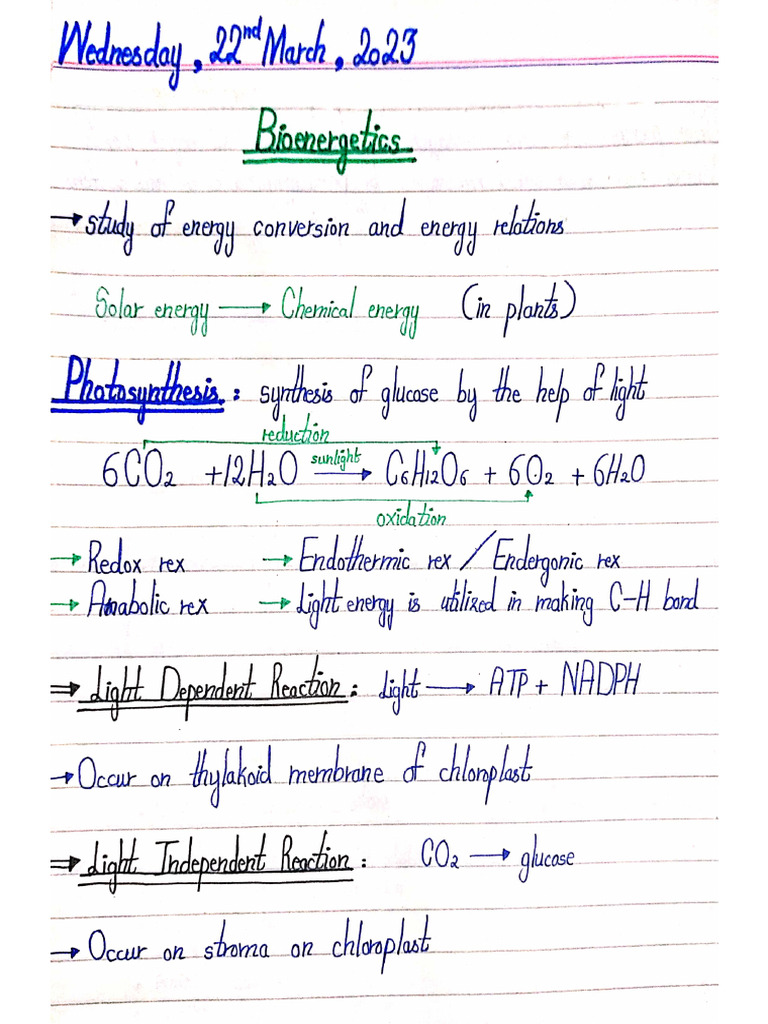 Wednesday, 22nd March, 2023
Bioenergetics
→ study of energy conversion and energy relations
Solar energy → Chemical energy (in plants)
Photosynthesis: synthesis of glucose by the help of light
reduction
6CO₂ + 12H₂O sunlight → C₆H₁₂O₆ + 6O₂ + 6H₂O
oxidation
→ Redox rex → Endothermic rex / Endergonic rex
→ Anabolic rex → Light energy is utilized in making C-H bond
⇒ Light Dependent Reaction: Light → ATP + NADPH
→ Occur on thylakoid membrane of chloroplast
⇒ Light Independent Reaction: CO₂ → glucose
→ Occur on stroma on chloroplast